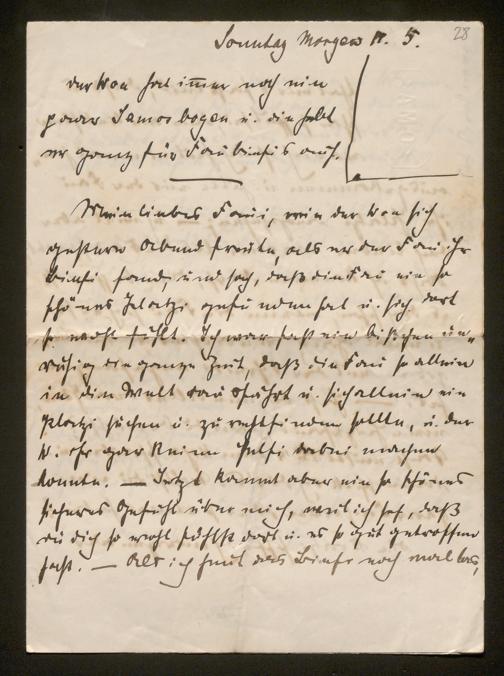 28
Sonntag Morgen 11. 5.
der Won hat immer noch ein
paar Samosbogen u. die hebt
er ganz für Faubriefis auf.
Mein liebes Faui, wie der Won sich
gestern Abend freute, als er der Faui ihr
briefi fand, und sah, daß die Fau ein so
schönes Platzi gefunden hat u. sich dort
so wohl fühlt. Ich war fast ein bißchen un„
ruhig die ganze Zeit, daß die Fau so allein
in die Welt raus fährt u. sich allein ein
Platzi suchen u. zurechtfinden sollte, u. der
W. ihr gar keine Helfi dabei machen
konnte. — Jetzt kommt aber ein so schönes
sicheres Gefühl über mich, weil ich seh, daß
du dich so wohl fühlst dort u. es so gut getroffen
hast. — Als ich heut das Briefi noch mal las,